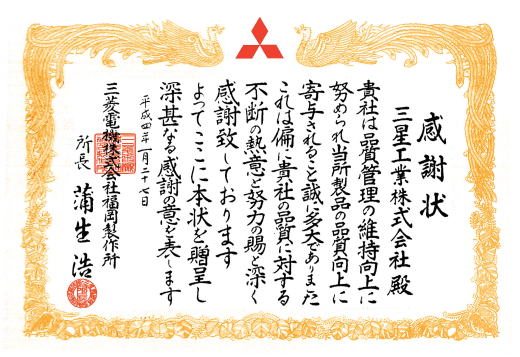 感謝状
三星工業株式会社殿
貴社は品質管理の維持向上に
努められ当所製品の品質向上に
寄与されること誠に多大でありまた
これは偏に貴社の品質に対する
不断の熱意と努力の賜と深く
感謝致しております
よってここに本状を贈呈し
深甚なる感謝の意を表します
平成四年一月二十七日
三菱電機株式会社福岡製作所
所長 蒲生浩